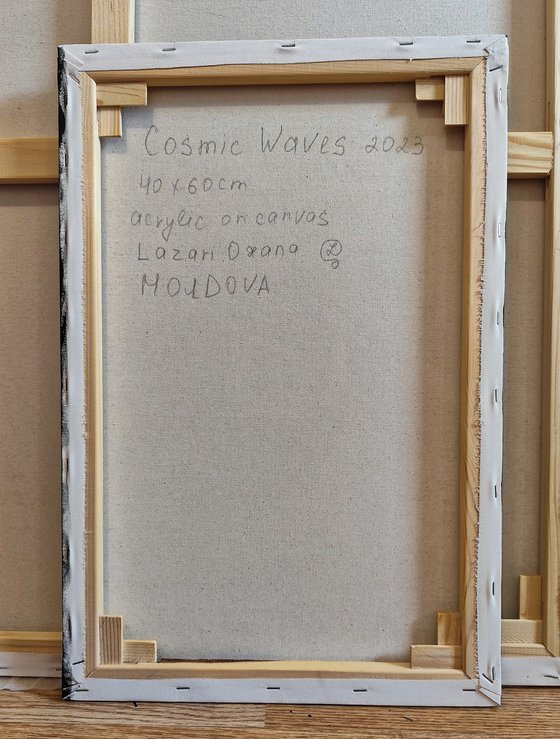 Cosmic Waves 2023
40 x 60 cm
acrylic on canvas
Lazari Oxana
MOLDOVA